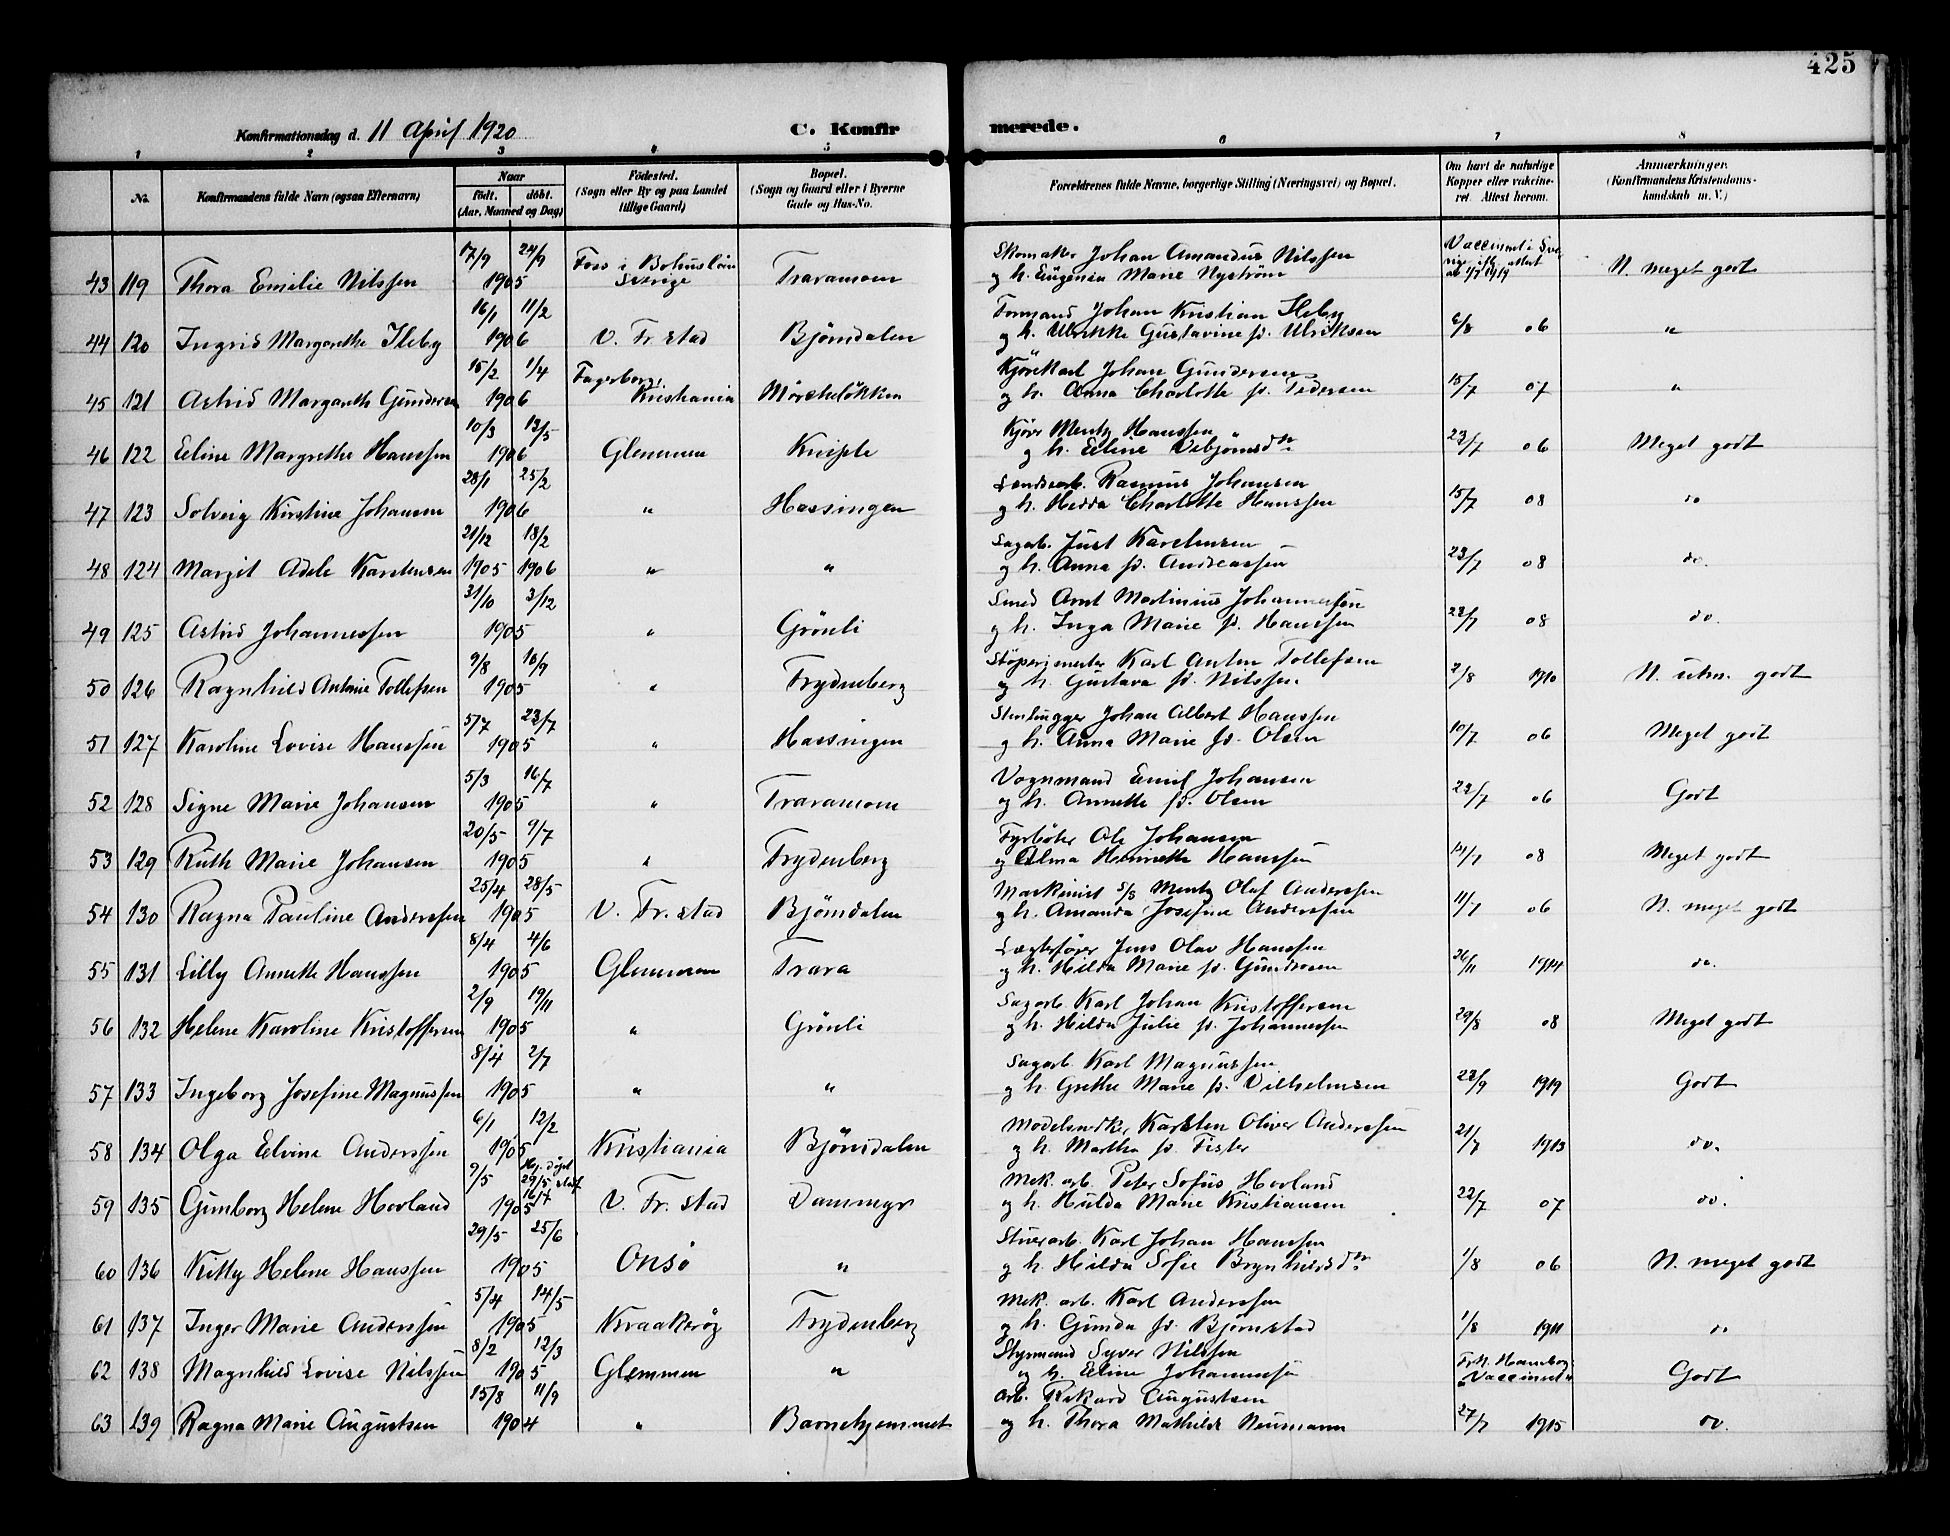 425
Konfirmationsdag d. 11 April 1920 C. Konfir merede.
1 2 3 4 5 6 7 8
No. Konfirmandens fulde Navn (ogsaa Efternavn) Naar født. døbt. (Aar, Maaned og Dag) Födested. (Sogn eller By og paa Landet tillige Gaard) Bopæl. (Sogn og Gaard eller i Byerne Gade og Hus-No. Forældrenes fulde Navne, borgerlige Stilling (Næringsvei) og Bopæl. Om havt de naturlige Kopper eller vaccineret. Attest herom. Anmærkninger. (Konfirmandens Kristendomskundskab m. V.)
17/9 24/9 Foss i Bohuslän Skomaker Johan Amandus Nilssen Vaccinert i Sve
43 119 Thora Emilie Nilssen 1905 Sverige Traramoen og h. Eugenia Marie Nyström N. meget godt
16/1 11/2 Formand Johan Kristian Ileby
44 120 Ingrid Margarethe Ileby 1906 V. Fr.stad Björndalen og h. Ulrikke Gustavine f. Ulriksen 6/8 06 "
15/2 1/4 Fagerborg, Kjörekarl Johan Gundersen
45 121 Astrid Margareth Gundersen 1906 Kristiania Mörcheløkken og h. Anna Charlotte f. Pedersen 15/7 07 "
10/3 13/5 Kjörer Mentz Hanssen
46 122 Eline Margrethe Hanssen 1906 Glemmen Kniple og h. Eline Vebjørnsdtr. 23/7 06 Meget godt
28/1 25/2 Landsarb. Rasmus Johansen
47 123 Solveig Kirstine Johansen 1906 " Hassingen og h. Hedda Charlotte Hanssen 15/7 08 do
21/12 18/2 Sagarb. Just Karelensen
48 124 Margit Adele Karelensen 1905 1906 " " og h. Anna f. Andreassen 23/7 08 do.
31/10 3/12 Smed Arnt Martinius Johannessen
49 125 Astrid Johannessen 1905 " Grönli og h. Inga Marie f. Hanssen 22/7 08 do.
9/8 10/9 Stöperimester Karl Anton Tollefsen
50 126 Ragnhild Antonie Tollefsen 1905 " Frydenberg og h. Gustava f. Nilssen 2/8 1910 N. utm. godt
5/7 23/7 Stenhugger Johan Albert Hanssen
51 127 Karoline Lovise Hanssen 1905 " Hassingen og h. Anna Marie f. Olsen 10/7 06 Meget godt
5/3 16/7 Vognmand Emil Johansen
52 128 Signe Marie Johansen 1905 " Traramoen og h. Annette f. Olsen 23/7 06 Godt
20/5 9/7 Fyrböter Ole Johansen
53 129 Ruth Marie Johansen 1905 " Frydenberg og Alma Henriette Hanssen 14/7 08 Meget godt
25/4 28/5 Maskinist s/s Mentz Olaf Anderssen
54 130 Ragna Pauline Anderssen 1905 V. Fr.stad Björndalen og h. Amanda Josefine Anderssen 11/7 06 N. meget godt
8/4 4/6 Lægterfører Jens Olav Hanssen
55 131 Lilly Annette Hanssen 1905 Glemmen Trara og h. Hilda Marie f. Gundersen 26/11 1914 do.
2/9 19/11 Sagarb. Karl Johan Kristoffersen
56 132 Helene Karoline Kristoffersen 1905 " Grönli og h. Hilda Julie f. Johannessen 29/8 08 Meget godt
8/4 2/7 Sagarb. Karl Magnussen
57 133 Ingeborg Josefine Magnussen 1905 " " og h. Grethe Marie f. Vilhelmsen 22/9 1919 Godt
6/1 12/2 Modelsnedker Karsten Oliver Anderssen
58 134 Olga Elvine Anderssen 1905 Kristiania Björndalen og h. Martha f. Fister 21/7 1913 do.
9/5 Hj. døpt 29/5 stad. 16/7 Mek. arb. Peter Sofus Hovland
59 135 Gunborg Helene Hovland 1905 V. Fr. stad Dammyr og h. Hulda Marie Kristiansen 22/7 07 do.
29/5 25/6 Stuerarb. Karl Johan Hanssen
60 136 Kitty Helene Hanssen 1905 Onsö " og h. Hilda Sofie Brynhildsdtr. 1/8 06 N. meget godt
5/4 14/5 Mek. arb. Karl Anderssen
61 137 Inger Marie Anderssen 1905 Kraakeröy Frydenberg og h. Gunda f. Björnstad 1/8 1911 do
8/2 12/3 Styrmand Syver Nilssen
62 138 Magnhild Lovise Nilssen 1905 Glemmen " og h. Eline Johannessen Vaccinert Godt
15/8 11/9 arb. Rikard Augustsen
63 139 Ragna Marie Augustsen 1904 " Barnehjemmet og h. Thora Mathilde Neumann 27/7 1915 do.